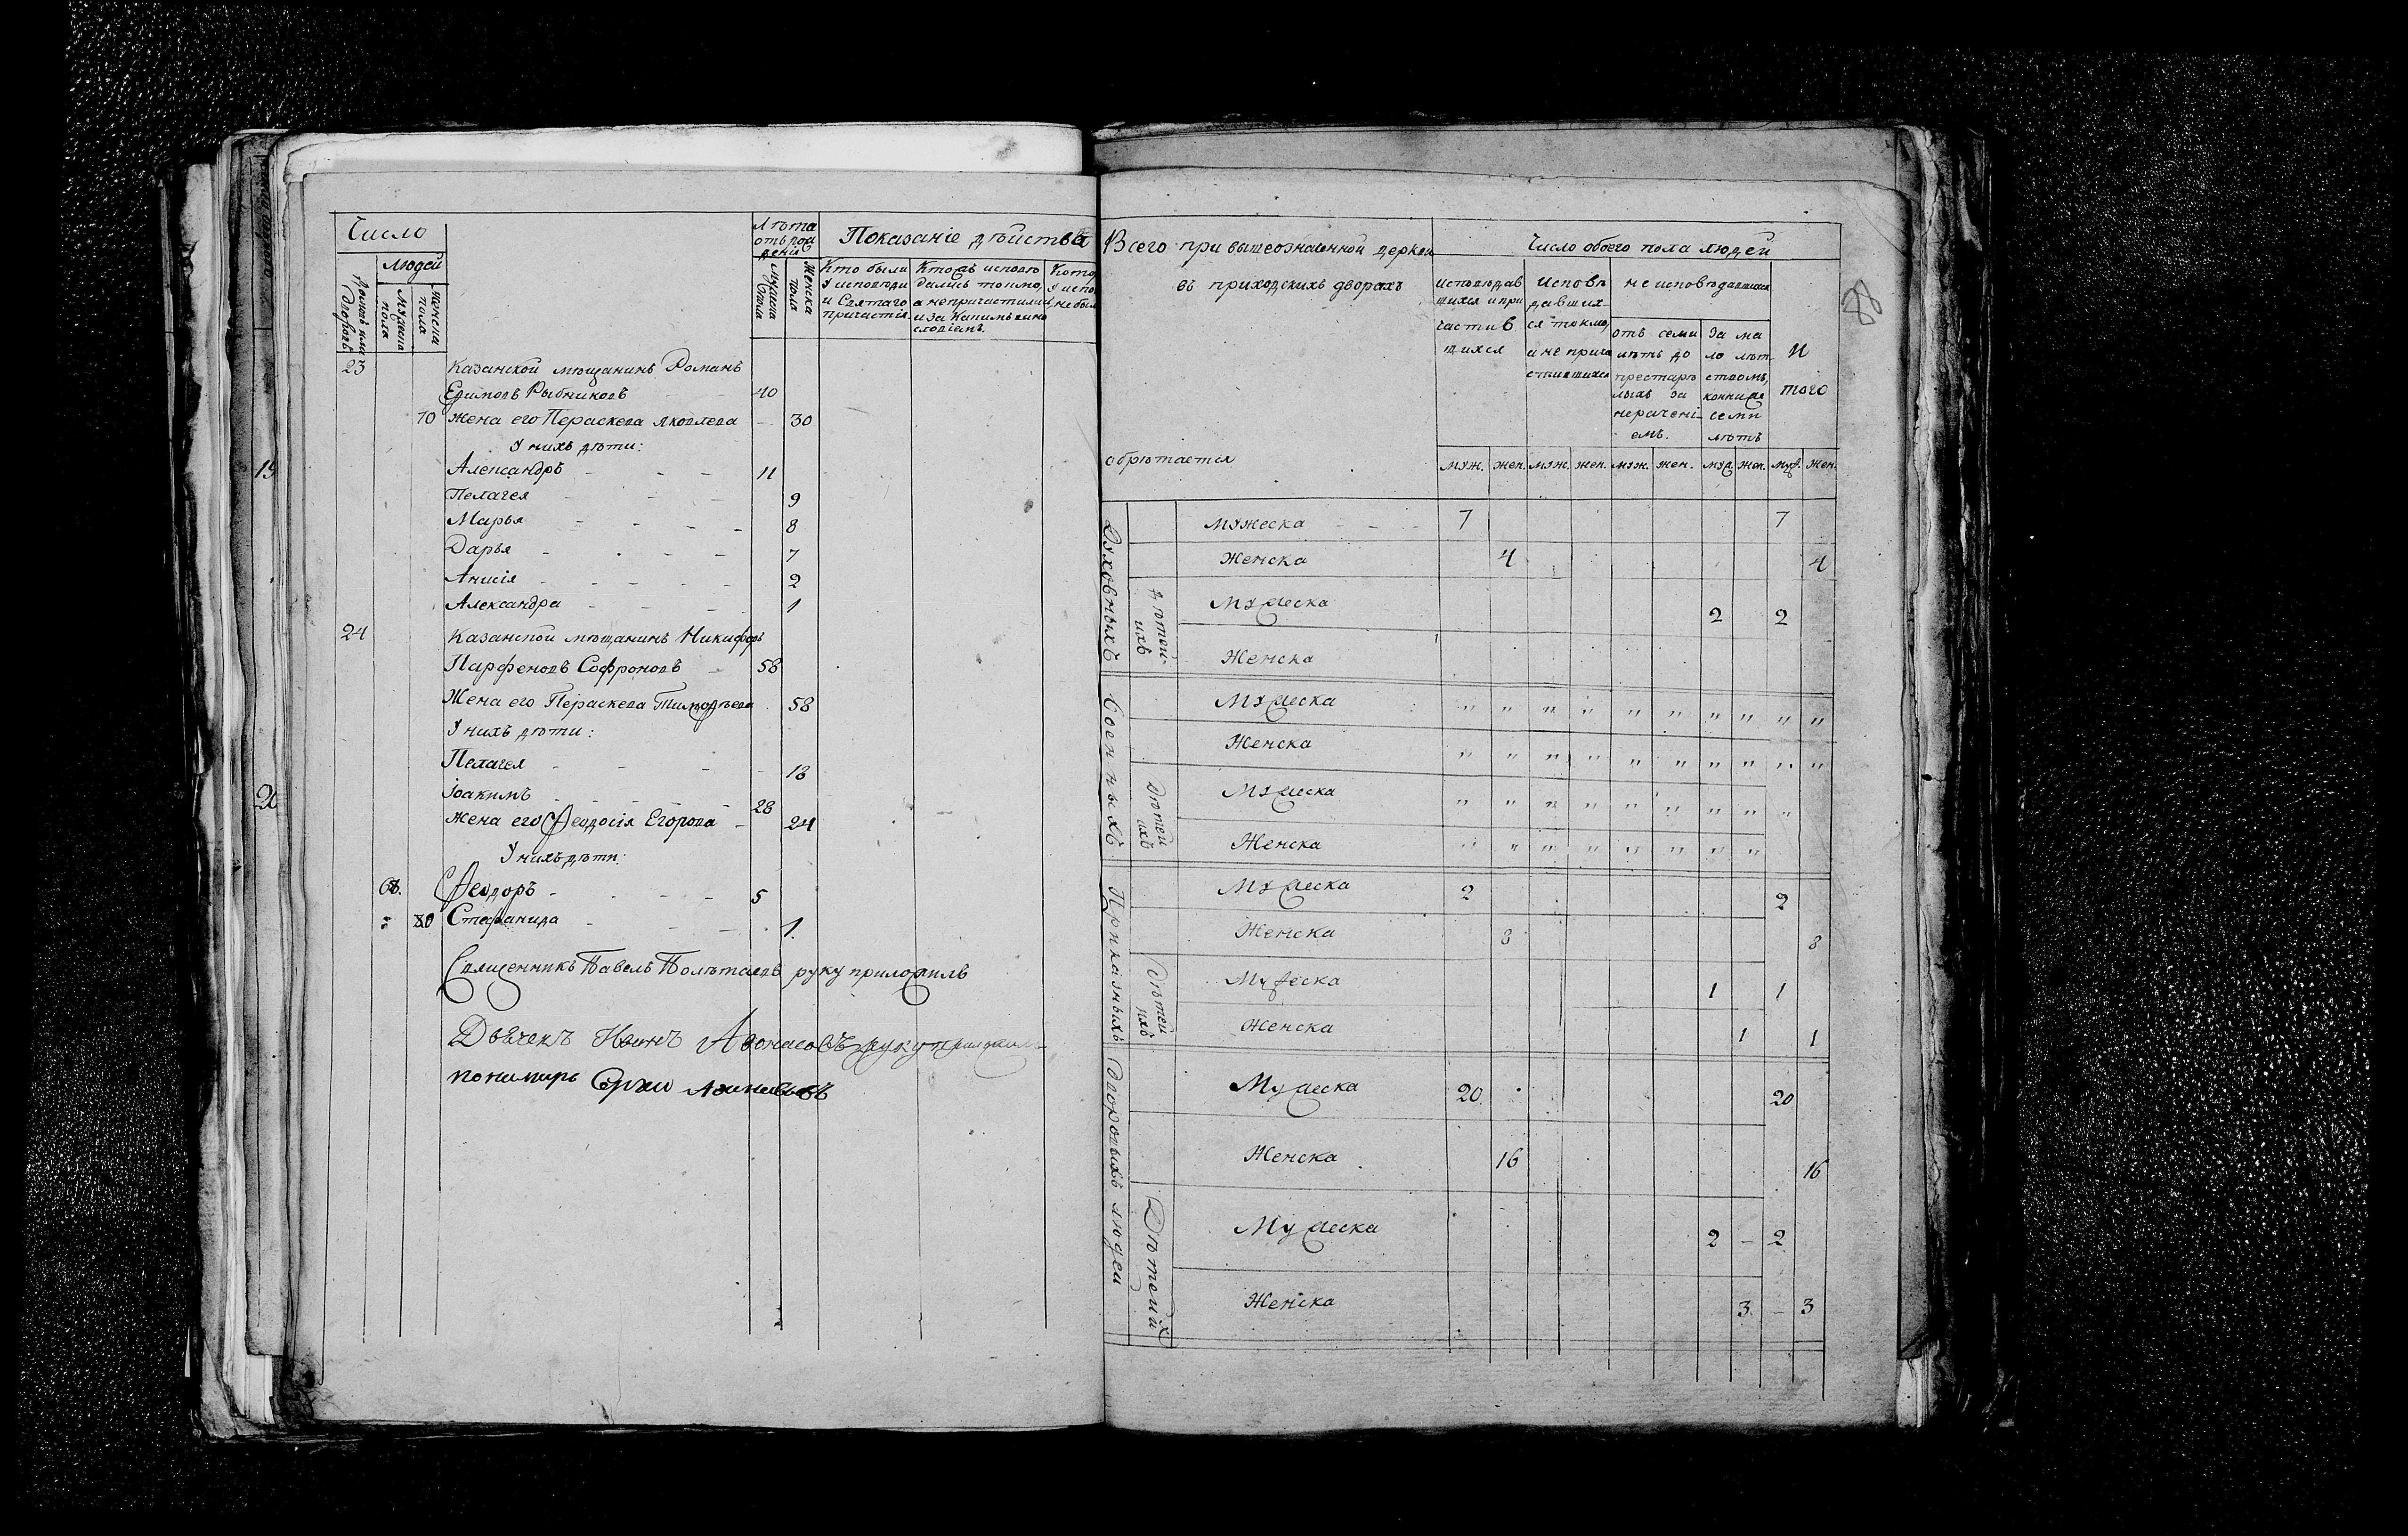 Число
Людей
Домовъ или дворовъ
Мужеска пола
Женска пола
Лѣта отъ рождения
Мужеска пола
Женска пола
Показаніе дѣйства
Кто были
у исповѣди
и Святаго
причастія
Кто въ исповѣ
дались токмо,
а непричастились
и за какимъ вино
словіемъ
19
20
23 Казанской мѣщанинъ Романъ
Ефимовъ Рыбниковъ 40
70 Жена его Параскева Яковлева 30
У нихъ дѣти:
Александръ 11
Пелагея 9
Марья 8
Дарья 7
Анисія 2
Александра 1
24 Казанской мѣщанинъ Никифоръ
Парфеновъ Софроновъ 58
Жена его Параскева Тимофѣева 58
У нихъ дѣти:
Пелагея 18
Іоакимъ 28
Жена его Феодосія Егорова 24
У нихъ дѣти:
Феодоръ 5
80 Стефанида 1
Священникъ Павелъ Полѣтаевъ руку приложилъ
Дьячекъ Иванъ руку приложилъ
пономарь
Всего при вышеозначенной церкви
въ приходскихъ дворахъ
обрѣтается
Число обоего пола людей
исповѣдав
шихся и при
частив
шихся
Исповѣ
давших-
ся токмо,
а не прича
стившихся
не исповѣдавшихся
отъ семи
лѣтъ до
престарѣ
лыхъ за
нерачені-
емъ.
За ма
ло лѣт-
ствомъ,
кои ниже
семи
лѣтъ
И
того
муж. жен. муж. жен. муж. жен. муж. жен. муж. жен.
88
Духовныхъ
Мужеска 7 7
Женска 4 4
дѣтей ихъ
Мужеска 2 2
Женска
Военныхъ
Мужеска " " " " " " " " " "
Женска " " " " " " " " " "
Дѣтей ихъ
Мужеска " " " " " " " " "
Женска " " " " " " " "
Приказныхъ
Мужеска 2 2
Женска 3 3
Дѣтей ихъ
Мужеска 1 1
Женска 1 1
Дворовыхъ людей
Мужеска 20 20
Женска 16 16
Дѣтей их
Мужеска 2 - 2
Женска 3 - 3